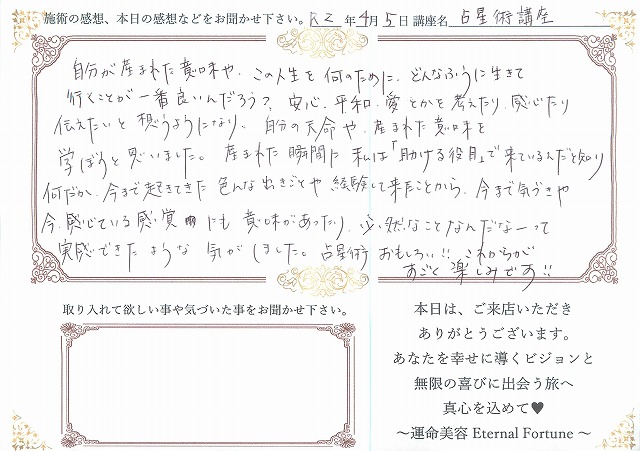 施術の感想、本日の感想などをお聞かせ下さい。R2年4月5日 講座名 占星術講座
自分が産まれた意味や、この人生を何のために、どんなふうに生きて
行くことが一番良いんだろう?安心、平和、愛とかを考えたり、感じたり
伝えたいと想うようになり、自分の天命や、産まれた意味を
学ぼうと思いました。産まれた瞬間に私は「助ける役目」で来ているんだと知り
何だか、今まで起きてきた色んな出きごとや経験して来たことから、今まで気づきや
今、感じている感覚にも意味があったり、必然なことなんだなーって
実感できたような気がしました。占星術おもしろい!!これからが
すごく楽しみです!!
取り入れて欲しい事や気づいた事をお聞かせ下さい。
本日は、ご来店いただき
ありがとうございます。
あなたを幸せに導くビジョンと
無限の喜びに出会う旅へ
真心を込めて♥
～運命美容 Eternal Fortune～